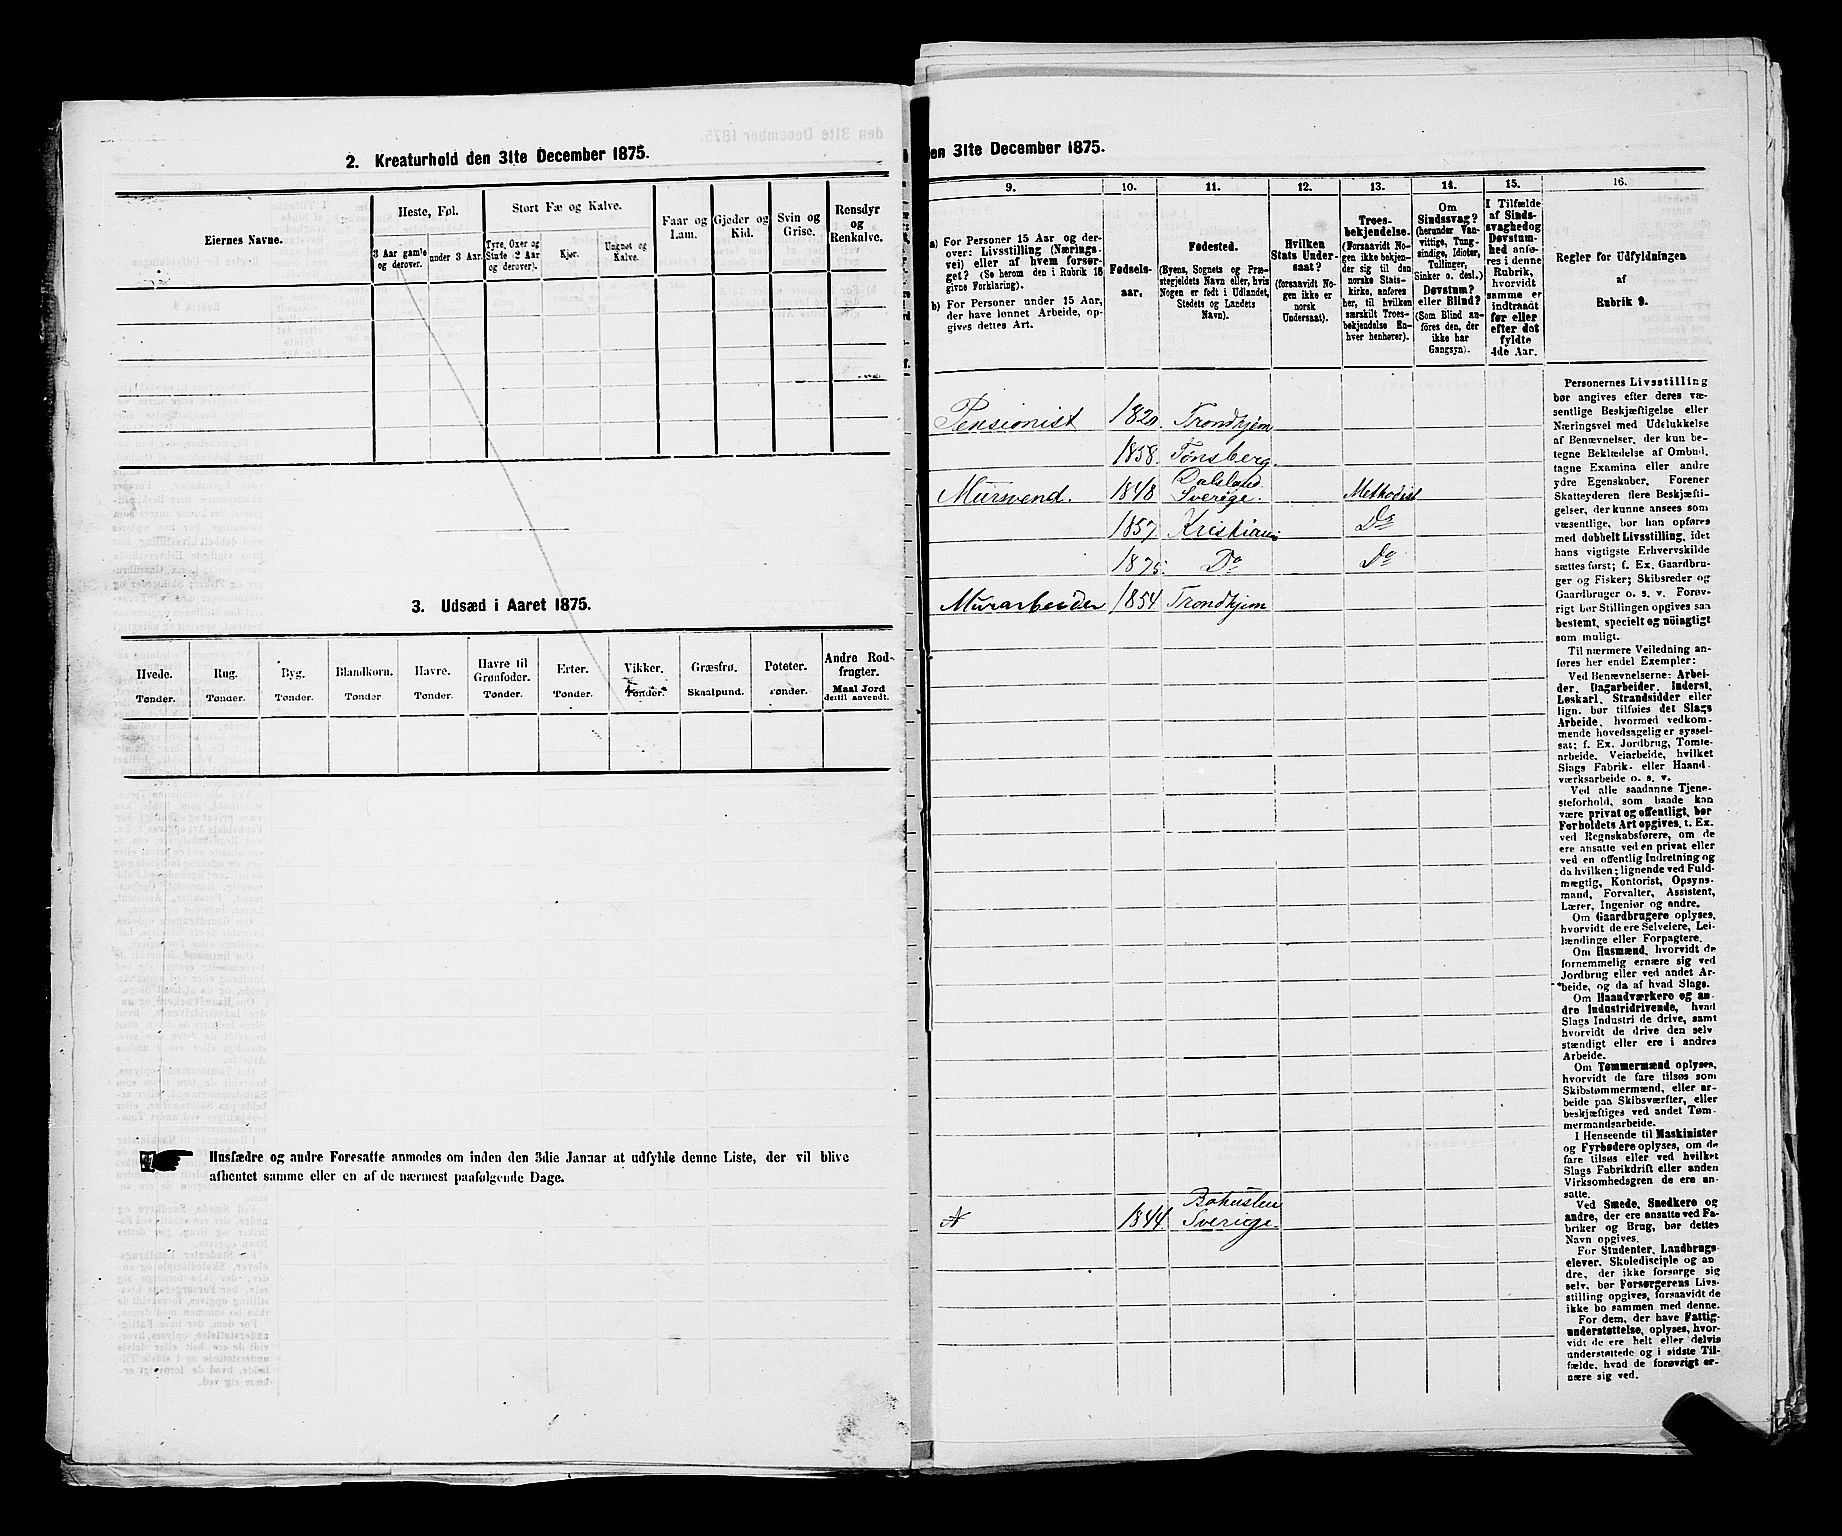 2. Kreaturhold den 31te December 1875.
Eiernes Navne.
Heste, Føl.
3 Aar gamle og derover.
under 3 Aar.
Stort Fæ og Kalve.
Tyre, Oxer og Stude (2 Aar og derover).
Kjør.
Ungnøt og Kalve.
Faar og Lam.
Gjeder og Kid.
Svin og Grise.
Rensdyr og Renkalve.
3. Udsæd i Aaret 1875.
Hvede. Rug. Byg. Blandkorn. Havre. Havre til Grønfoder. Erter. Vikker. Græsfrø. Poteter. Andre Rodfrugter.
Tønder. Tønder. Tønder. Tønder Tønder. Tønder. Tønder. Tønder. Skaalpund. Tønder. Maal Jord dertil anvendt.
Husfædre og andre Foresatte anmodes om inden den 3die Januar at udfylde denne Liste, der vil blive
afhentet samme eller en af de nærmest paafølgende Dage.
den 31te December 1875.
9. 10. 11. 12. 13. 14. 15. 16.
a) For Personer 15 Aar og derover: Livsstilling (Næringsvei) eller af hvem forsørget? (Se herom den i Rubrik 16 givne Forklaring).
b) For Personer under 15 Aar, der have lønnet Arbeide, opgives dettes Art.
Fødselsaar.
Fødested.
(Byens, Sognets og Præstegjeldets Navn eller, hvis Nogen er født i Udlandet, Stedets og Landets Navn).
Hvilken Stats Undersaat?
(forsaavidt Nogen ikke er norsk Undersaat).
Troesbekjendelse.
(Forsaavidt Nogen ikke bekjender sig til den norske Statskirke, anføres her, til hvilken særskilt Troesbekjendelse Enhver henhører).
Om Sindssvag?
(herunder Vanvittige, Tungsindige, Idioter, Tullinger, Sinker o. desl.)
Døvstum? eller Blind?
(Som Blind anføres den, der ikke har Gangsyn).
I Tilfælde af Sindssvaghed og Døvstumhed anføres i denne Rubrik, hvorvidt samme er indtraadt før eller efter det fyldte 4de Aar.
Regler for Udfyldningen
af
Rubrik 9.
Pensionist 1820. Trondhjem
1858. Tønsberg.
Mursvend. 1848 Dalsland Sverige. Methodist
1857 Kristiania Do
1875. Do Do
Murarbeider 1854 Trondhjem
1844. Bohuslen Sverige.
Personernes Livsstilling
bør angives efter deres væsentlige
Beskjæftigelse eller
Næringsvei med Udelukkelse
af Benævnelser, der kun betegne
Beklædelse af Ombud,
tagne Examina eller andre
ydre Egenskaber. Forener
Skatteyderen flere Beskjæftigelser,
der kunne ansees som
væsentlige, bør han opføres
med dobbelt Livsstilling, idet
hans vigtigste Erhvervskilde
sættes først; f. Ex. Gaardbruger
og Fisker; Skibsreder og
Gaardbruger o. s. v. Forøvrigt
bør Stillingen opgives saa
bestemt, specielt og nøiagtigt
som muligt.
Til nærmere Veiledning anføres
her endel Exempler:
Ved Benævnelserne: Arbeider,
Dagarbeider, Inderst,
Løskarl, Strandsidder eller
lign. bør tilføies det Slags
Arbeide, hvormed vedkommende
hovedsagelig er sysselsat;
f. Ex. Jordbrug, Tomtearbeide,
Veiarbeide, hvilket
Slags Fabrik- eller Haandværksarbeide
o. s. v.
Ved alle saadanne Tjenesteforhold,
som baade kan
være privat og offentligt, bør
Forholdets Art opgives, t. Ex.
ved Regnskabsførere, om de
ere ansatte ved en privat eller
ved en offentlig Indretning og
da hvilken; lignende ved Fuldmægtig,
Kontorist, Opsynsmand,
Forvalter, Assistent,
Lærer, Ingeniør og andre.
Om Gaardbrugere oplyses,
hvorvidt de ere Selveiere, Leilændinge
eller Forpagtere.
Om Husmænd, hvorvidt de
fornemmelig ernære sig ved
Jordbrug eller ved andet Arbeide,
og da af hvad Slags.
Om Haandværkere og andre
Industridrivende, hvad
Slags Industri de drive, samt
hvorvidt de drive den selvstændigt
eller ere i andres
Arbeide.
Om Tømmermænd oplyses,
hvorvidt de fare tilsøs som
Skibstømmermænd, eller arbeide
paa Skibsværfter, eller
beskjæftiges ved andet Tømmermandsarbeide.
I Henseende til Maskinister
og Fyrbødere oplyses, om de
fare tilsøs eller ved hvilket
Slags Fabrikdrift eller anden
Virksomhedsgren de ere ansatte.
Ved Smede, Snedkere og
andre, der ere ansatte ved Fabriker
og Brug, bør dettes
Navn opgives.
For Studenter, Landbrugselever,
Skoledisciple og andre,
der ikke forsørge sig
selv, bør Forsørgerens Livsstilling
opgives, forsaavidt de
ikke bo sammen med denne.
For dem, der have Fattigunderstøttelse,
oplyses, hvorvidt
de ere helt eller delvis
understøttede og i sidste Tilfælde,
hvad de forøvrigt ernære
sig ved.